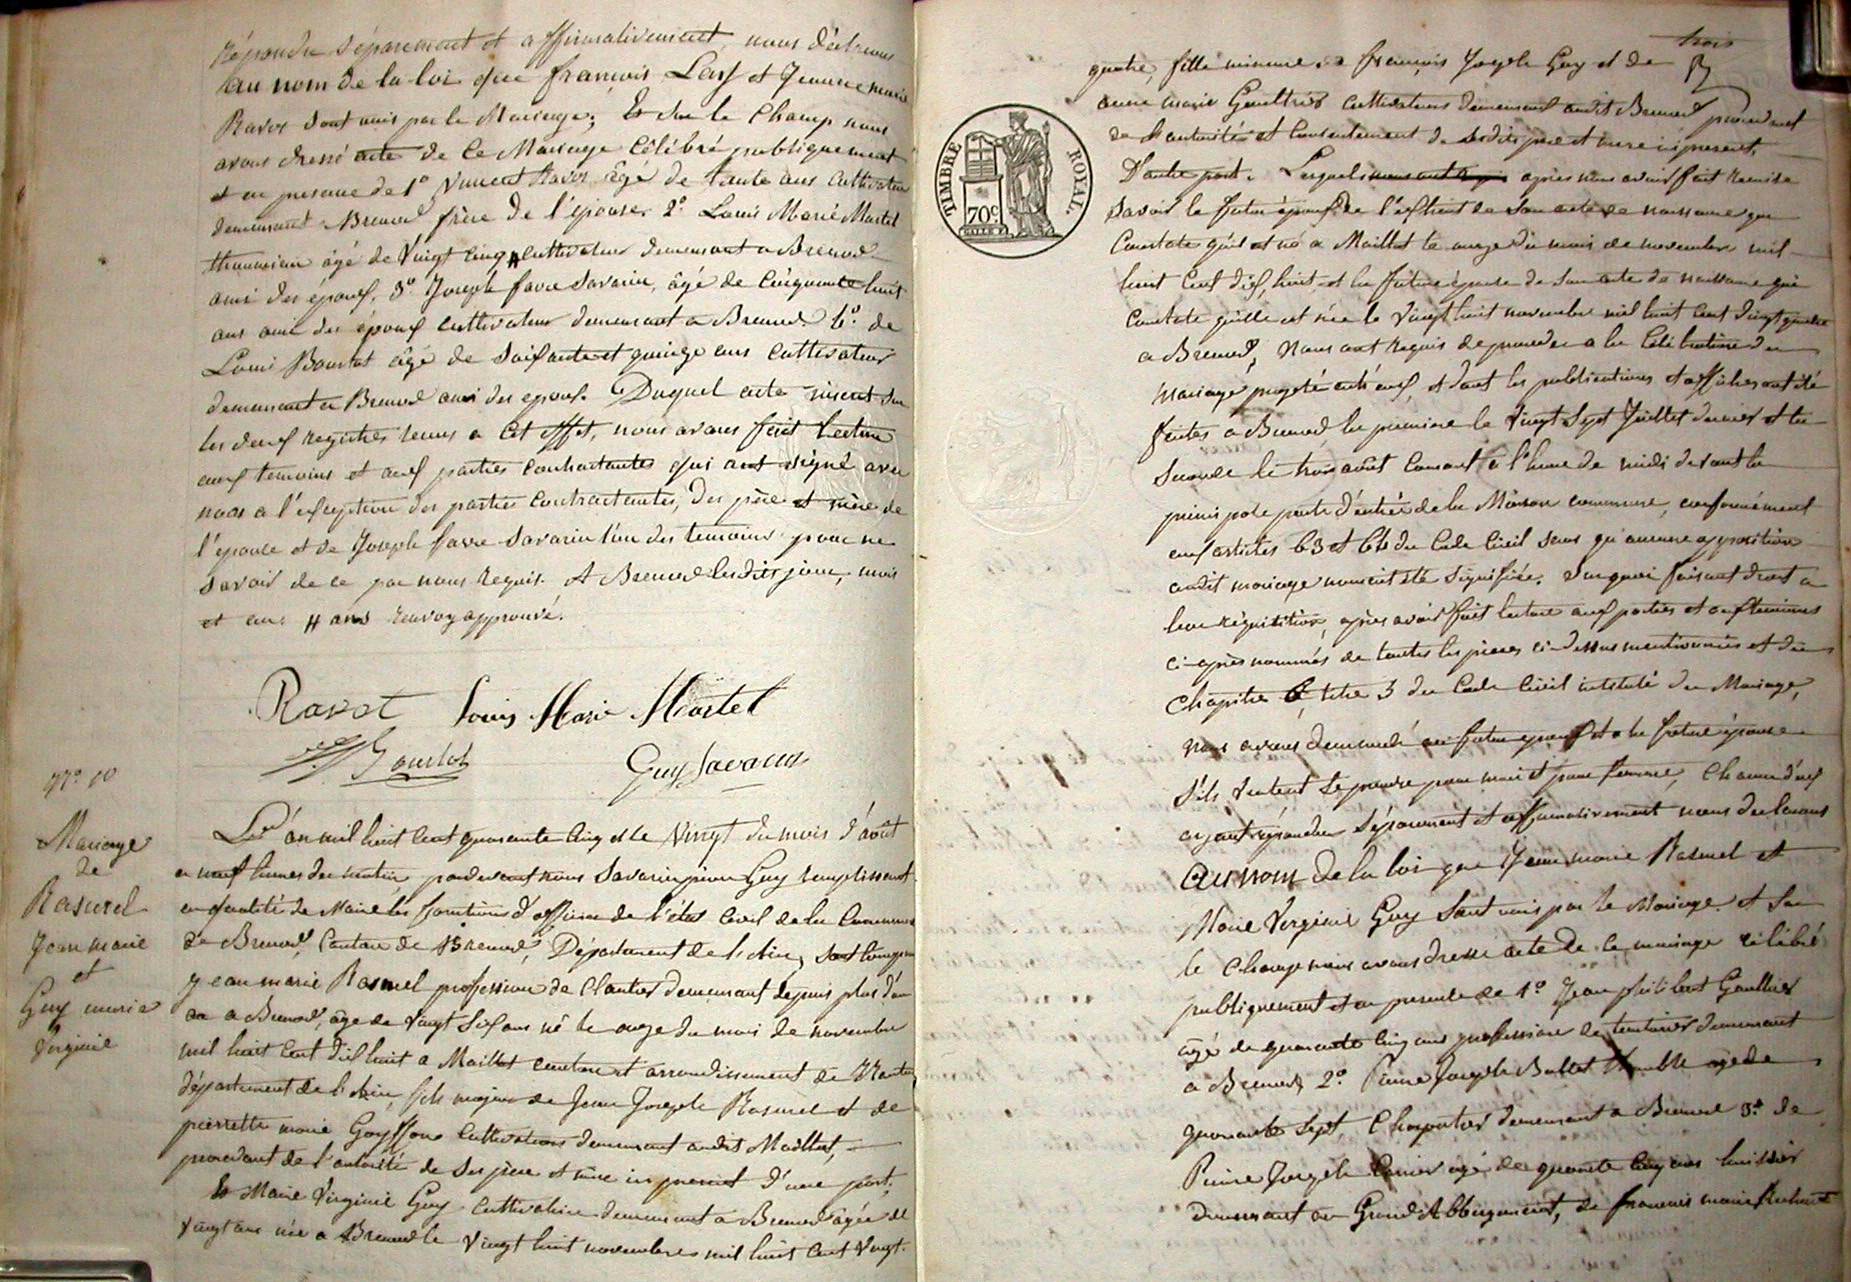 répondu séparément et affirmativement, nous déclarons
au nom de la loi que françois Lary et Jeanne marie
Ravot sont unis par le Mariage; Et sur le Champ nous
avons dressé acte de Ce Mariage Célébré publiquement
et en presence de 1º Vincent Ravot âgé de trente ans Cultivateur
demeurant a Brenod frère de l'épouse. 2º Louis Marie Martel
âgé de Vingt cinq # cultivateur demeurant a Brenod
ami des époux, 3º Joseph favre Savarin, âgé de Cinquante huit
ans ami des époux cultivateur demeurant a Brenod. 4º de
Louis Bourlot âgé de Soixante et quinze ans Cultivateur
demeurant a Brenod ami des epoux. Duquel acte inscrit sur
les deux registres tenus a Cet effet, nous avons fait Lecture
aux temoins et aux parties contractantes qui ont signé avec
nous a l'exception des parties Contractantes, des père et mère de
l'épouse et de Joseph favre Savarin l'un des temoins pour ne
savoir de ce par nous requis. A Brenod lesdits jour, mois
et an. # ans renvoy approuvé.
Ravot Louis Marie Martel
Bourlot Guy Savarin
Nº 10
Mariage
de
Rasurel
Jean marie
et
Guy marie
Virginie
L'an mil huit cent quarante cinq et le Vingt du mois d'août
a neuf heures du matin pardevant nous Savarin pierre Guy remplissant
en qualité de Maire les fonctions d'officier de l'état Civil de la Commune
de Brenod, Canton de Brenod, Département de l'Ain, sont comparus
Jean marie Rasurel profession de Cloutier demeurant depuis plus d'un
an a Brenod, âgé de vingt six ans né le onze du mois de novembre
mil huit cent dix huit a Maillat canton et arrondissement de Nantua
département de l'Ain, fils majeur de Jean Joseph Rasurel et de
pierrette marie Goyffon Cultivateurs demeurant audit Maillat,
procédant de l'autorité de ses père et mère ici présent d'une part,
Et Marie Virginie Guy Cultivatrice demeurant a Brenod âgée de
vingt ans née a Brenod le vingt huit novembre mil huit cent vingt-
trois
quatre, fille mineure de françois Joseph Guy et de
anne marie Gaulthier Cultivateurs demeurant audit Brenod procédant
de l'autorité et Consentement de sesdits père et mere ici present.
D'autre part. Lesquels après nous avoir fait remise
Savoir le futur époux de l'extrait de son acte de naissance qui
Constate qu'il est né a Maillat le onze du mois de novembre mil
huit Cent dix huit et la future épouse de son acte de naissance qui
Constate qu'elle est née le vingt huit novembre mil huit cent vingt quatre
a Brenod, Nous ont requis de proceder a la Célébration du
Mariage projeté entr'eux, et dont les publications et affiches ont été
faites a Brenod la premiere le Vingt Sept Juillet dernier et la
seconde le trois août Courant a l'heure de midi devant la
principale porte d'entrée de la Maison commune, conformément
aux articles 63 et 64 du Code Civil sans qu'aucune opposition
audit mariage nous ait été signifiée. Surquoi faisant droit a
leur réquisition, après avoir fait lecture aux parties et aux temoins
ci-après nommés de toutes les pieces ci-dessus mentionnées et du
Chapitre 6 titre 5 du Code Civil intitulé du Mariage,
nous avons demandé au futur epoux et a la future épouse
s'ils veulent se prendre pour mari et pour femme, Chacun d'eux
ayant répondu séparément et affirmativement nous declarons
au nom de la loi que Jean marie Rasurel et
Marie Virginie Guy Sont unis par le Mariage. et sur
le Champ nous avons dressé acte de ce mariage célébré
publiquement et en presence de 1º Jean philibert Gaulthier
âgé de quarante cinq ans profession de demeurant
a Brenod, 2º Pierre Joseph Ballet agé de
quarante sept, Charpentier demeurant a Brenod 3º de
Pierre Joseph agé de quarante cinq ans huissier
demeurant au Grand Abbergement, de françois marie
TIMBRE ROYAL.
70c